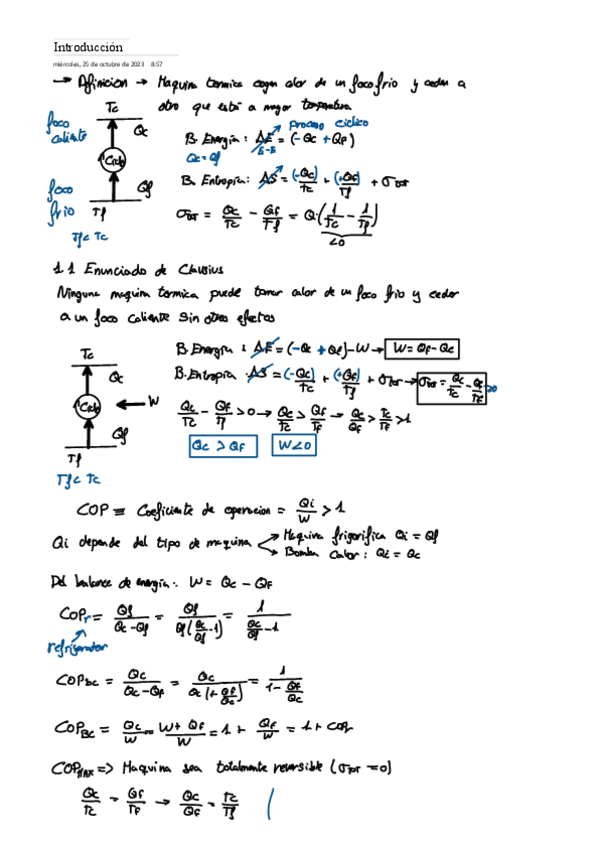 Introducción
miércoles, 25 de octubre de 2023 8:57
→ Definicion → Maquina termica cogen calor de un foco frio y ceden a
otro que está a mayor temperatura
foco caliente
Tc
Qc
Ciclo
foco frio
Qf
Tf
Tf < Tc
proceso ciclico
B. Energia: ΔE = (-Qc + Qf)
Qc = Qf
B. Entropia: ΔS = (-Qc)/Tc + (+Qf)/Tf + σtot
σtot = Qc/Tc - Qf/Tf = Q·(1/Tc - 1/Tf)
<0
1.1 Enunciado de Clausius
Ninguna maquina termica puede tomar calor de un foco frio y ceder
a un foco caliente sin otros efectos
Tc
Qc
Ciclo
← W
Qf
Tf
Tf < Tc
B. Energia: ΔE = (-Qc + Qf) - W → W = Qf - Qc
B. Entropia: ΔS = (-Qc)/Tc + (+Qf)/Tf + σtot → σtot = Qc/Tc - Qf/Tf >0
Qc/Tc - Qf/Tf > 0 → Qc/Tc > Qf/Tf → Qc/Qf > Tc/Tf > 1
Qc > Qf
W<0
COP ≡ Coeficiente de operacion = Qi/W > 1
Qi depende del tipo de maquina
Maquina frigorifica Qi = Qf
Bomba Calor: Qi = Qc
Del balance de energia: W = Qc - QF
COPr = Qf/(Qc-Qf) = Qf/(Qf(Qc/Qf - 1)) = 1/(Qc/Qf - 1)
refrigerador
COPbc = Qc/(Qc-Qf) = Qc/(Qc(1+Qf/Qc)) = 1/(1-Qf/Qc)
COPBC = Qc/W = (W+Qf)/W = 1 + Qf/W = 1 + COPr
COPMAX => Maquina sea totalmente reversible (σtot = 0)
Qc/Tc = Qf/Tf → Qc/Qf = Tc/Tf (